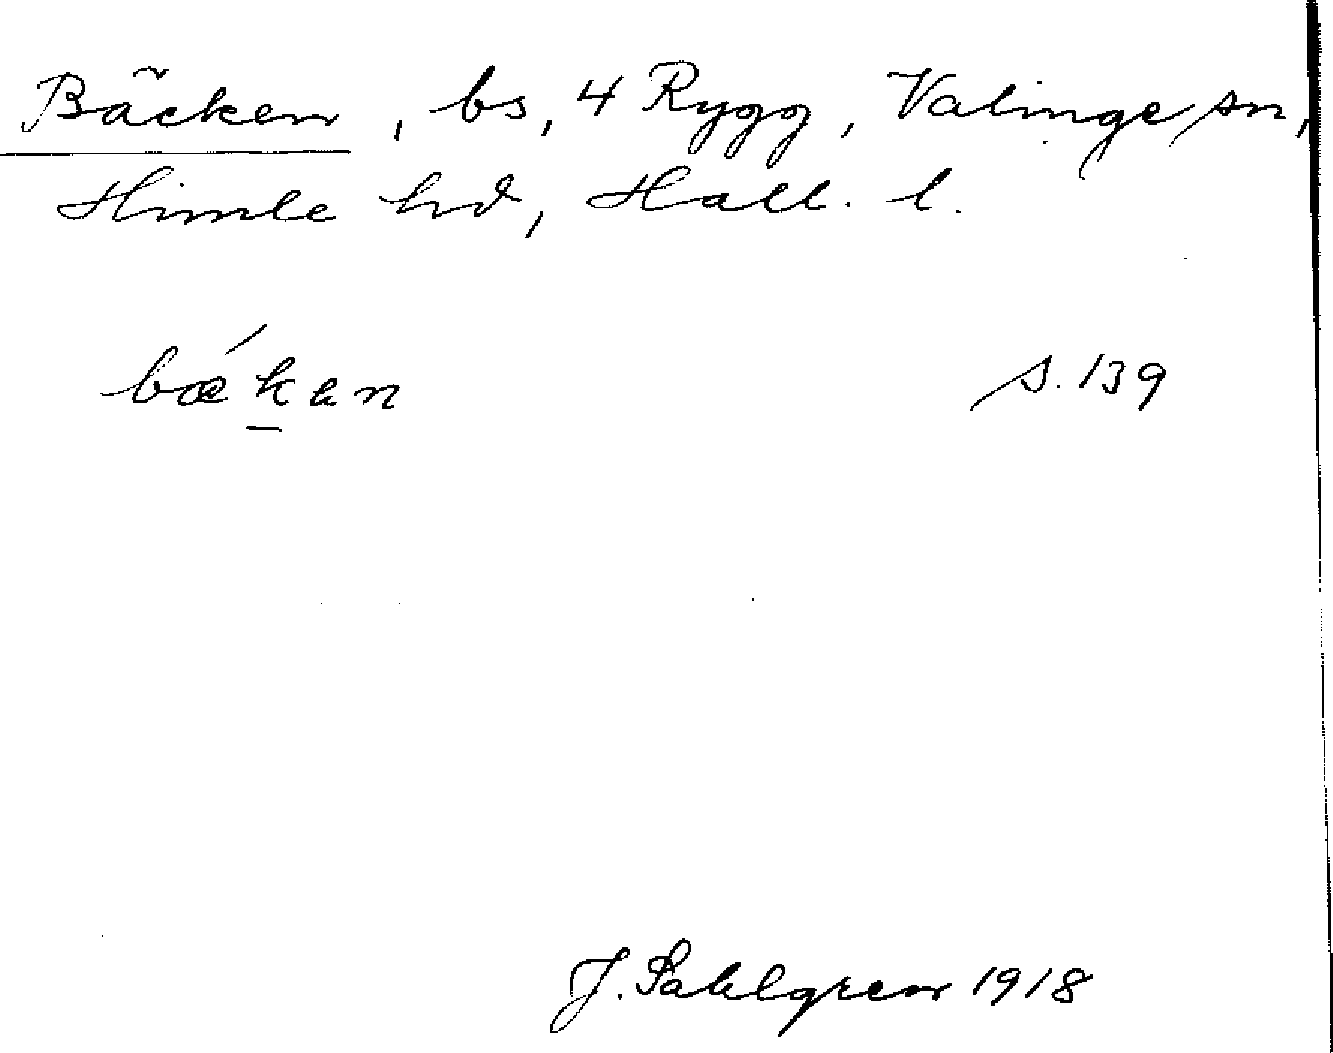 Bäcken, bs, 4 Rygg, Valinge sn,
Himle hd, Hall. l.
bǽk̲ en s. 139
J. Sahlgren 1918